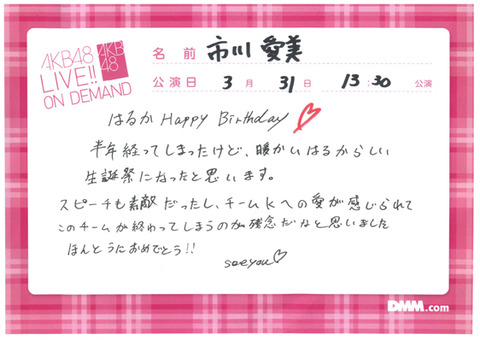 AKB48
LIVE!!
ON DEMAND
AKB
48
名 前 市川愛美
公演日 3 月 31 日 13:30 公演
はるか Happy Birthday
半年経ってしまったけど、暖かいはるからしい
生誕祭になったと思います。
スピーチも素敵だったし、チームKへの愛が感じられて
このチームが終わってしまうのが残念だなと思いました
ほんとうにおめでとう!!
see you
DMM.com